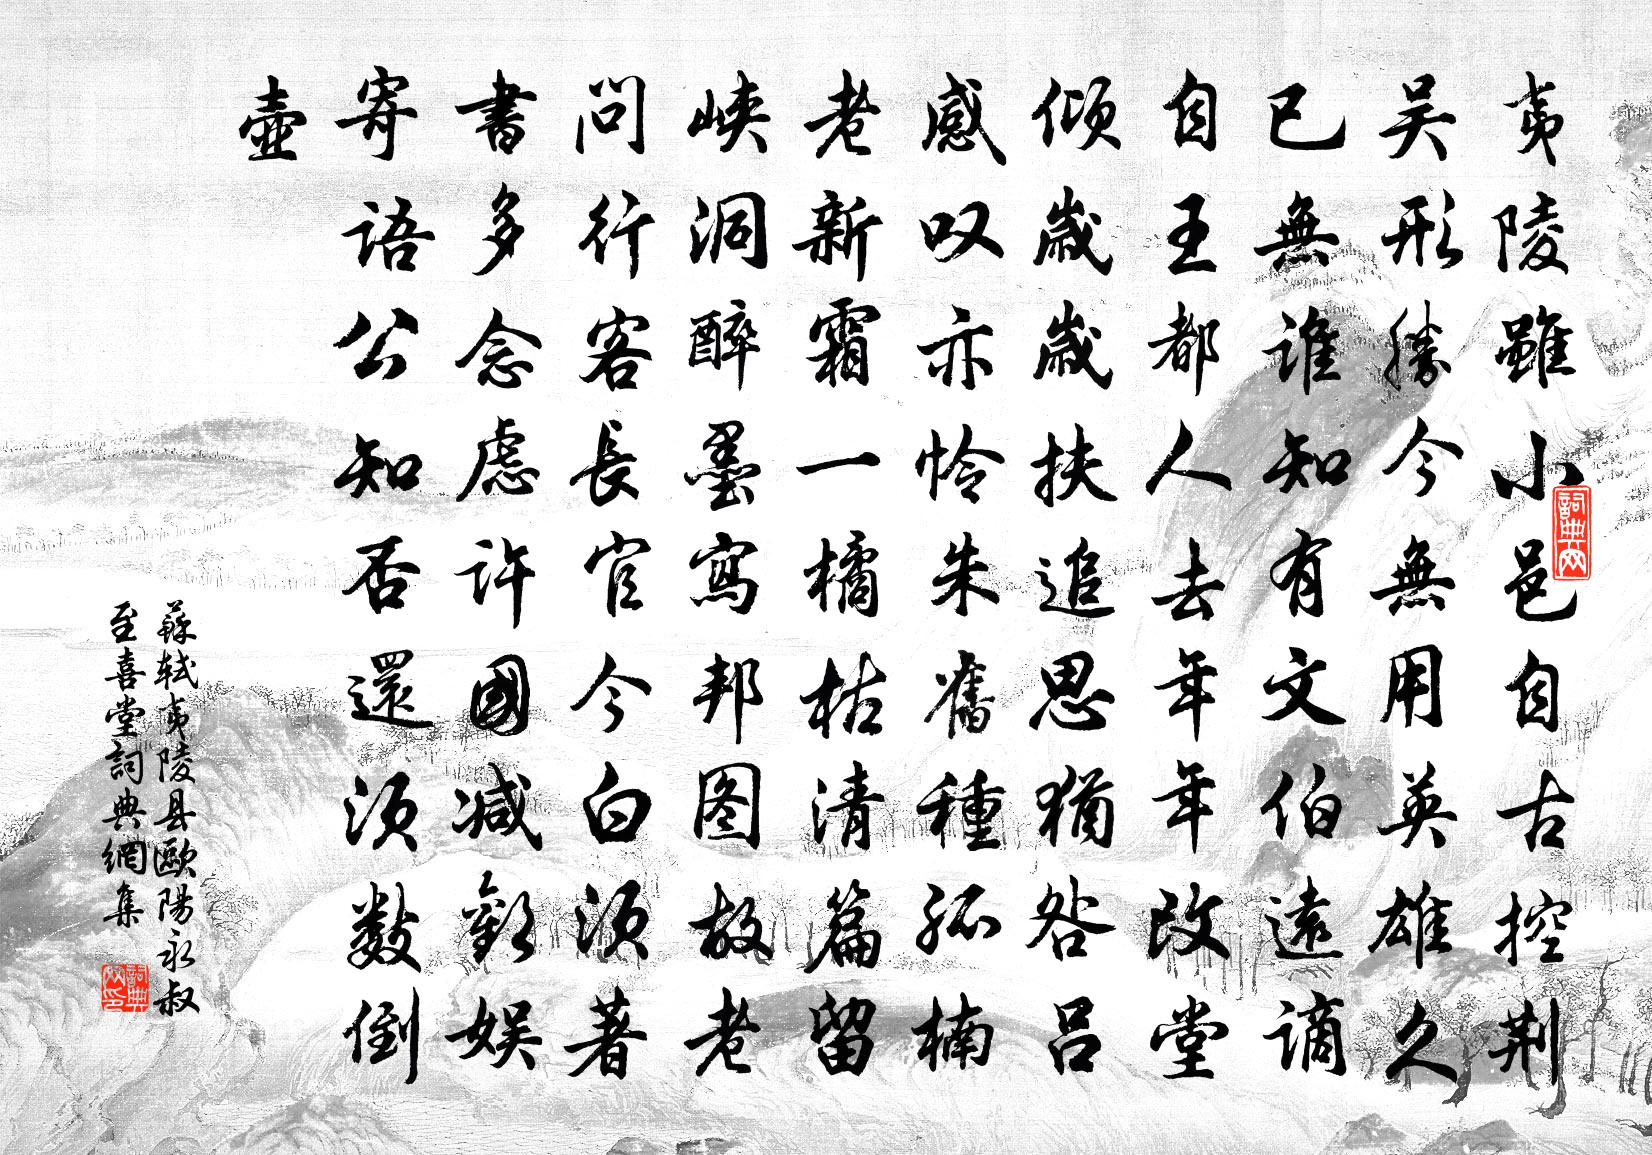 夷陵雖小邑自古控荆
吴形勝今無用英雄久
已無谁知有文伯遠谪
自王都人去年年改堂
倾嵗嵗扶追思猶咎吕
感叹亦怜朱舊種孤楠
老新霜一橘枯清篇留
峡洞醉墨寫邦图故老
问行客長官今白须著
書多念虑许國减歡娱
寄语公知否還须数倒
壺
蘇轼夷陵县歐陽永叔
至喜堂詞典網集
詞典网
詞典网印